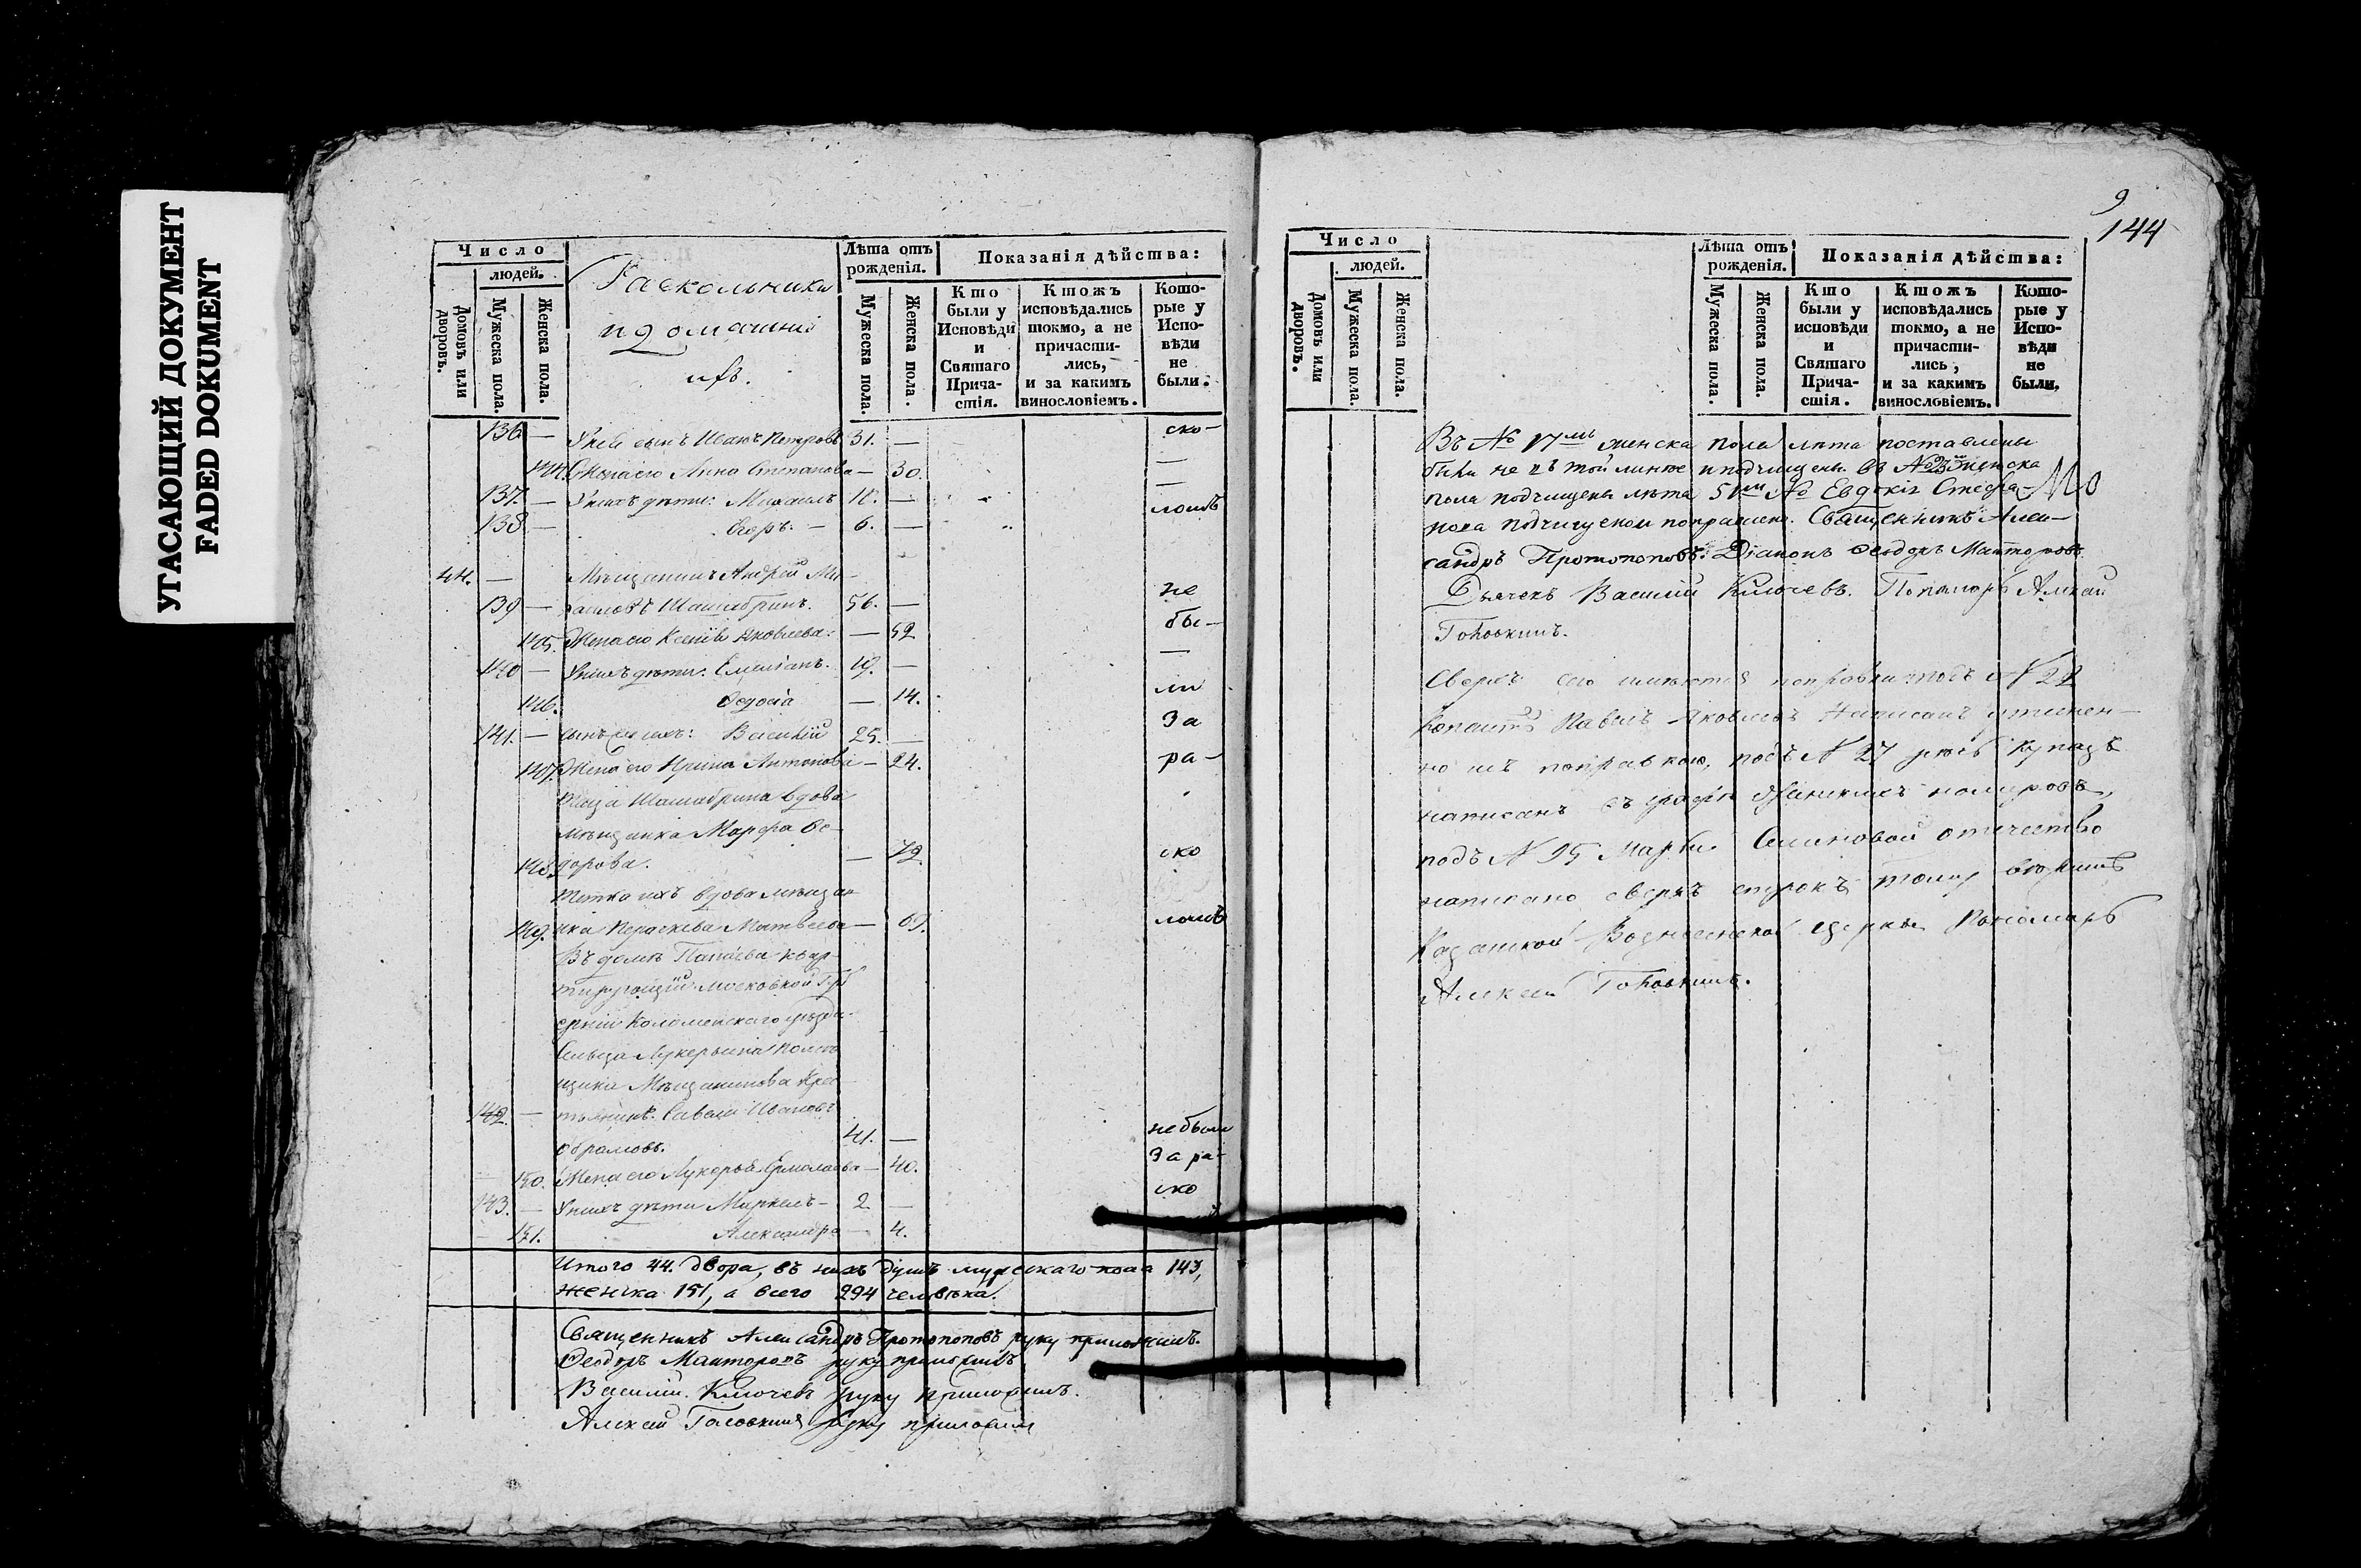 УГАСАЮЩИЙ ДОКУМЕНТ
FADED DOKUMENT
Число
людей.
Домовъ или дворовъ.
Мужеска пола.
Женска пола.
Раскольники
и домашнiе
ихъ.
Лѣта отъ рожденія.
Мужеска пола.
Женска пола.
Показанія дѣйства:
Кто были у Исповѣди и Святаго Причастія.
Ктожъ исповѣдались токмо, а не причастились, и за какимъ винословіемъ.
Которые у Исповѣди не были.
136 — У ней сынъ Иванъ Петровъ 31. — ско-
144. Жена его Анна Степанова — 30. —
137. — У нихъ дѣти: Михаилъ 12. — —
138. — Егоръ. — 6. — ломъ
44. — Мѣщанинъ Андрей Ми-
139 — хаиловъ Шамабринъ. 56. — не
145. Жена его Ксенія Яковлева: — 52 бы-
140 — У нихъ дѣти: Емеліанъ. 19. — —
146. Ѳедосіа — 14. ли
141. — сынъ ихъ: Василій 25. — За
147. Жена его Ирина Антонова — 24. ра-
Шамабрина вдова
мѣщанка Марфа Ѳе-
148. дорова. — 72 ско
Тетка ихъ вдова мѣщан
149. ика Параскева Матвѣева — 69. ломъ
Въ домѣ Попаева квар-
тирующій Московской Губ
ерніи Коломенскаго уѣзда
Сельца Лукерьина помѣ
щика Мѣщанинова Крес
142. — тьянинъ Савелій Ивановъ
Абрамовъ. 41. — небыли
150. Жена его Лукерья Ермолаева — 40. За ра-
143. — У нихъ дѣти Маркелъ — 2 — ско
151. Александра — 4.
Итого 44. двора, въ нихъ душъ мужескаго пола 143,
женска 151, а всего 294 человѣка.
Священникъ Александръ Протопоповъ руку приложилъ.
Ѳеодоръ Манторовъ руку приложилъ
Василій Ключевъ руку приложилъ.
Алексей Головкинъ руку приложилъ
9
144
Число
людей.
Домовъ или дворовъ.
Мужеска пола.
Женска пола.
Лѣта отъ рожденія.
Мужеска пола.
Женска пола.
Показанія дѣйства:
Кто были у исповѣди и Святаго Причастія.
Ктожъ исповѣдались токмо, а не причастились, и за какимъ винословіемъ.
Которые у Исповѣди не были.
Въ № 17мъ женска пола лѣта поставлены
были не въ той линіе и подчищены въ № женска
пола подчищены лѣта 51мъ № Евдокіа Стефа-
нова подчищеном поправлено. Священникъ Алек-
сандръ Протопоповъ. Діаконъ Ѳеодоръ Манторовъ
Дьячекъ Василій Ключевъ. Пономарь Алексей
Головкинъ.
Сверхъ сего имѣются поправки подъ № 22
Павелъ Яковлевъ Написанъ
но съ поправкою, подъ № 27 купецъ
написанъ въ графѣ женскихъ номеровъ,
подъ № 95 Марьи Семеновой отчество
написано сверхъ строкъ тому
Казанской Вознесенской церкви Пономарь
Алексей Головкинъ.